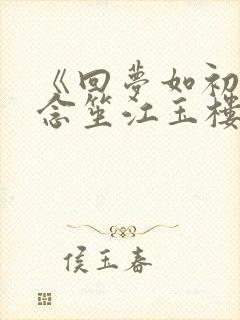 《回梦如初
念笙江玉楼
侯玉春